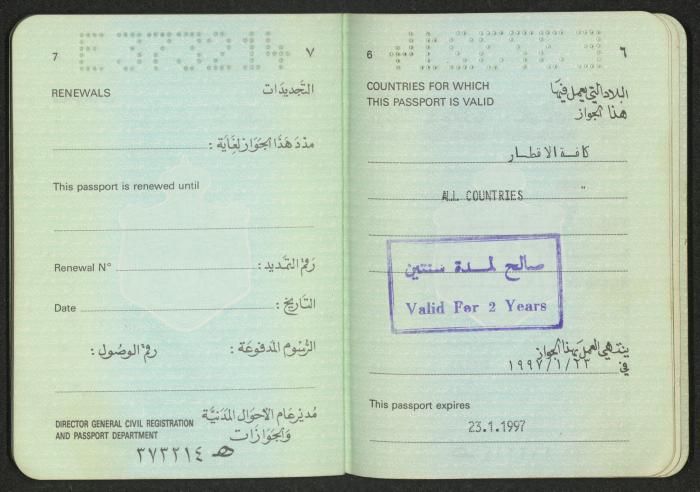 6
٦
COUNTRIES FOR WHICH
THIS PASSPORT IS VALID
البلاد التي يعمل فيها
هذا الجواز
كافة الاقطار
ALL COUNTRIES "
صالح لمدة سنتين
Valid For 2 Years
ينتهي العمل بهذا الجواز
في ١٩٩٧/١/٢٣
This passport expires
23.1.1997
7
٧
RENEWALS
التجديدات
مدد هذا الجواز لغاية :
This passport is renewed until
Renewal N°
رقم التمديد :
Date
التاريخ :
الرسوم المدفوعة :
رقم الوصول :
DIRECTOR GENERAL CIVIL REGISTRATION
AND PASSPORT DEPARTMENT
مدير عام الأحوال المدنية
والجوازات
ھ ٣٧٣٢١٤